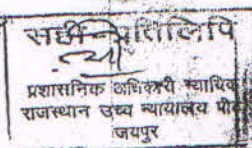 सही प्रतिलिपि
प्रशासनिक अधिकारी न्यायिक
राजस्थान उच्च न्यायालय पीठ
जयपुर